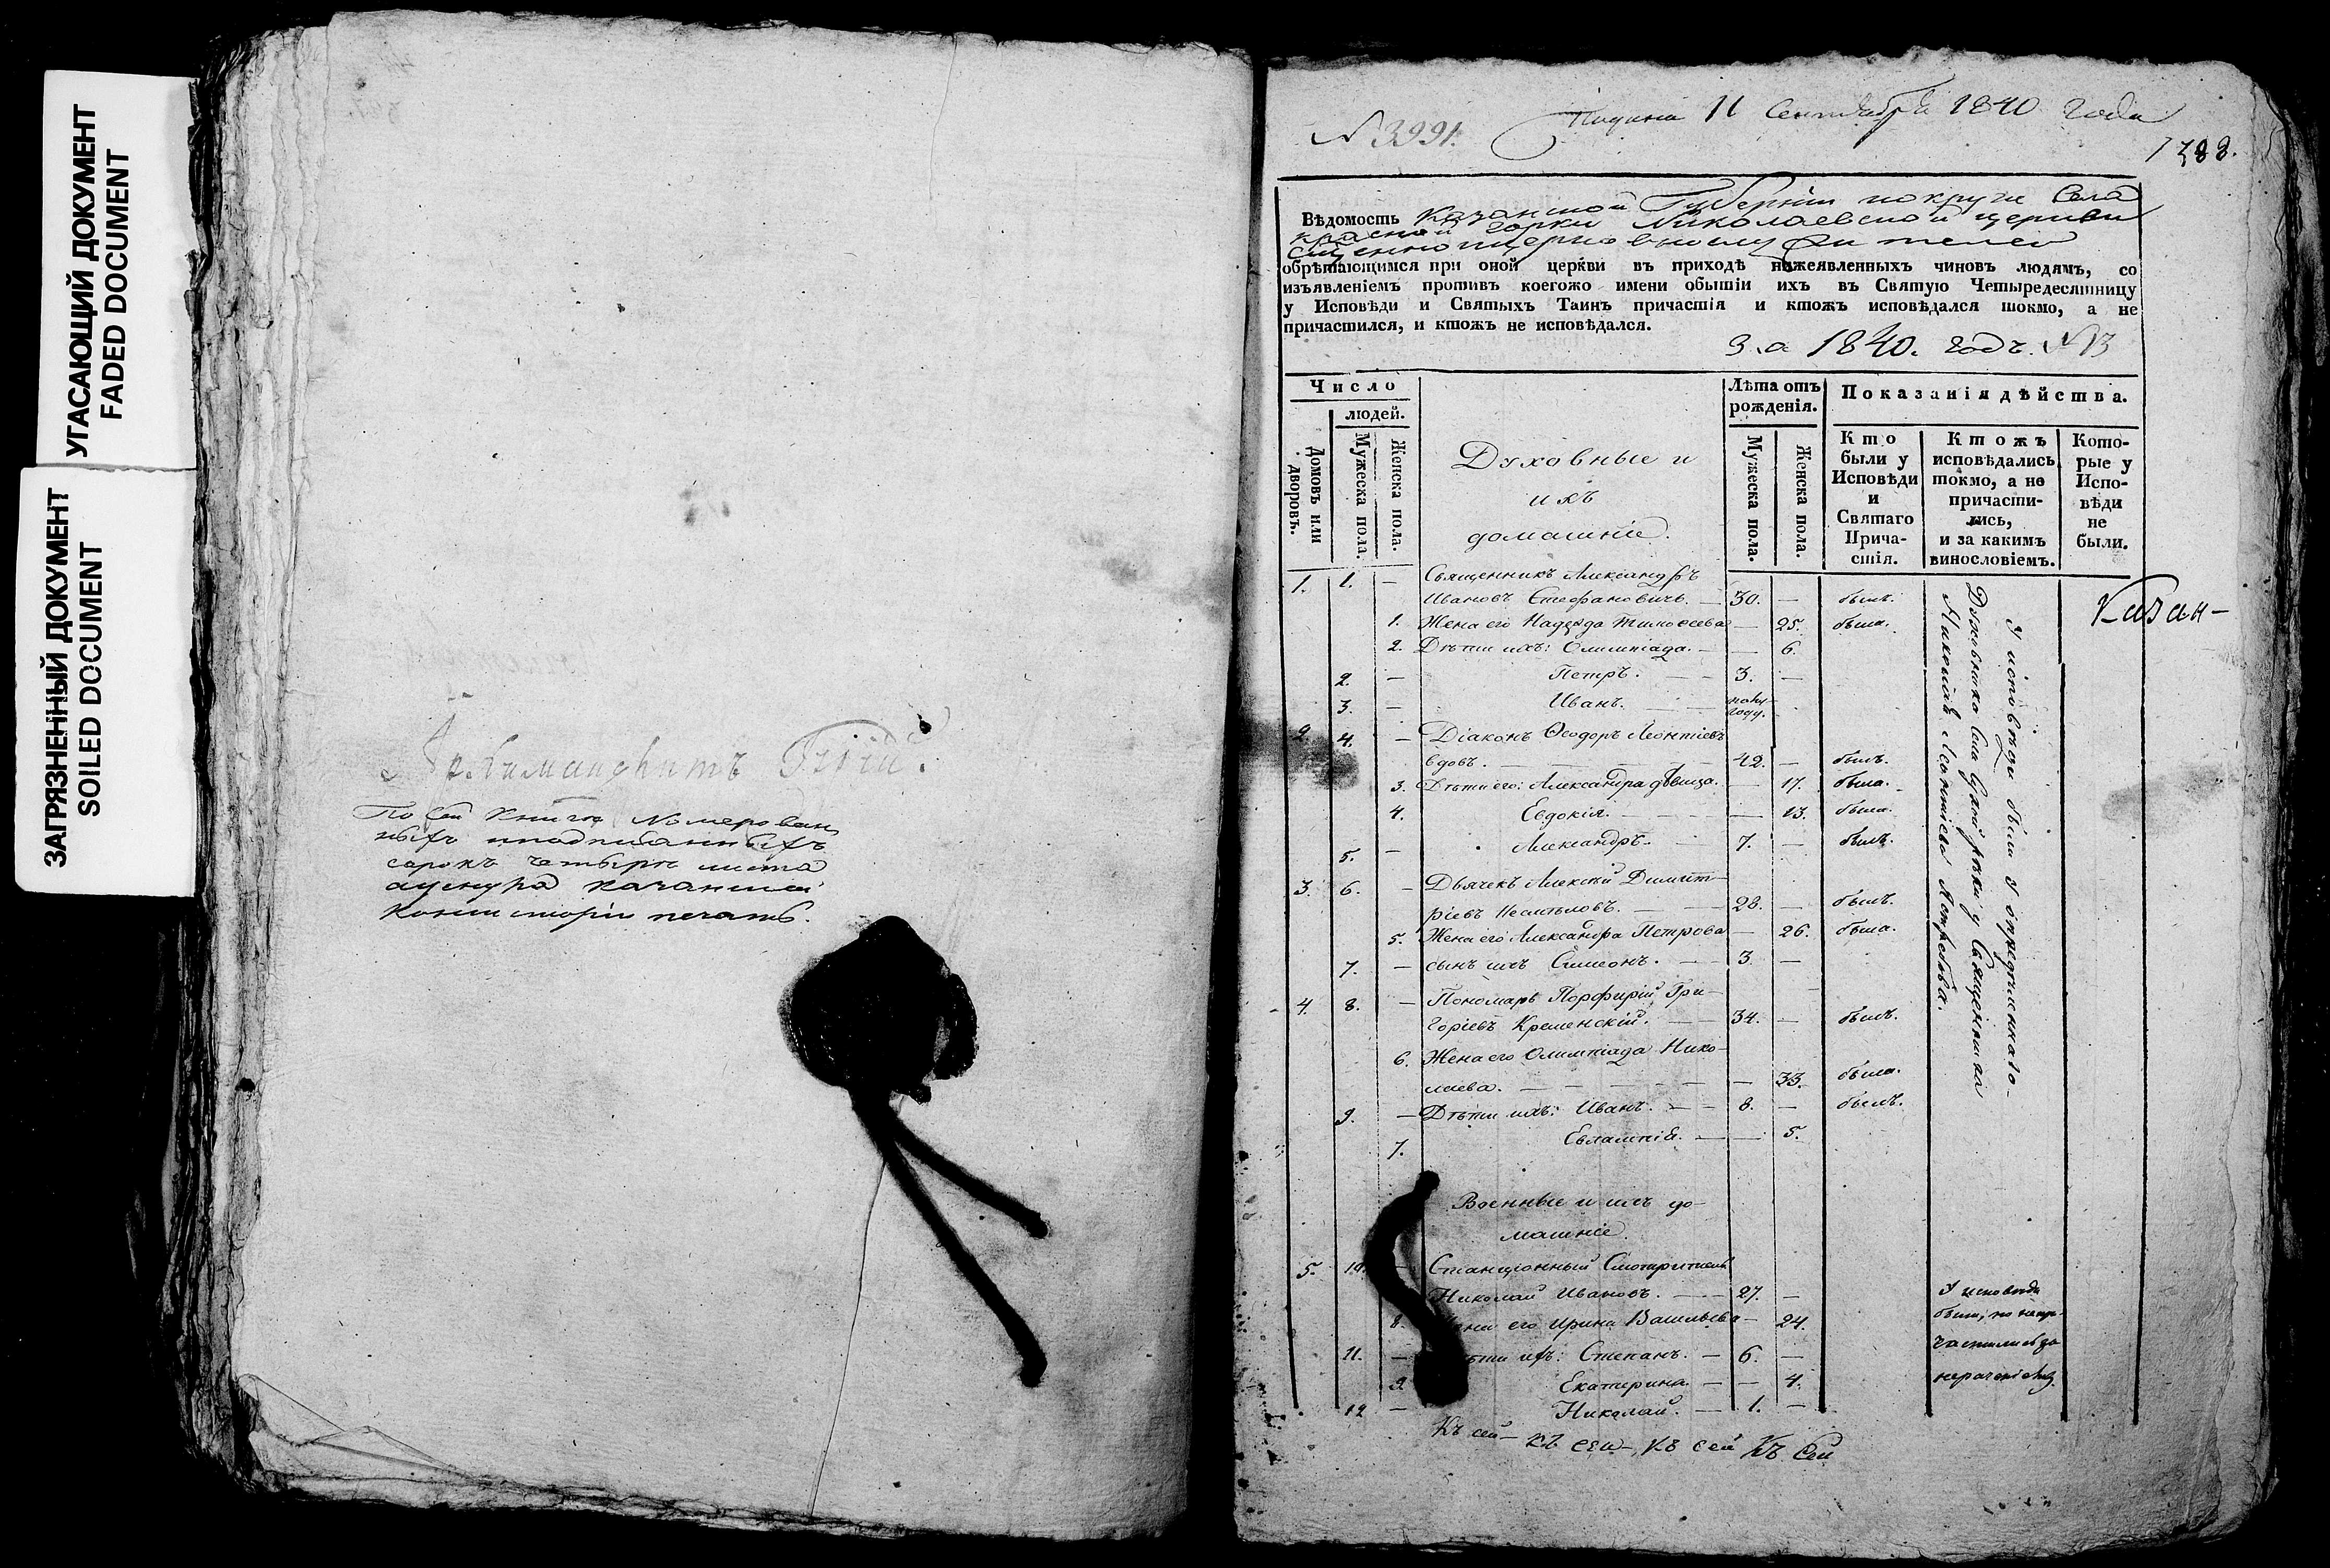 УГАСАЮЩИЙ ДОКУМЕНТ
FADED DOCUMENT
ЗАГРЯЗНЕННЫЙ ДОКУМЕНТ
SOILED DOCUMENT
Архимандритъ
По сей Книге номерован
ныхъ
сорокъ четыре листа
печать.
N 3991.
11 Сентября 1840 года
Вѣдомость Казанской Губерніи по округе Села
Красной Горки Николаевской церкви
обрѣтающимся при оной церкви въ приходѣ нижеявленныхъ чиновъ людямъ, со
изъявленіемъ противъ коегожо имени обытіи ихъ въ Святую Четыредесятницу
у Исповѣди и Святыхъ Таинъ причастія и ктожъ исповѣдался токмо, а не
причастился, и ктожъ не исповѣдался.
За 1840. годъ. N 13
Число
людей.
Домовъ или дворовъ.
Мужеска пола.
Женска пола.
Духовные и
ихъ
домашніе.
Лѣта отъ
рожденія.
Мужеска пола.
Женска пола.
Показанія дѣйства.
Кто
были у
Исповѣди
и
Святаго
Прича-
стія.
Ктожъ
исповѣдались
токмо, а не
причасти-
лись,
и за какимъ
винословіемъ.
Кото-
рые у
Испо-
вѣди
не
были.
1. 1. — Священникъ Александръ
Ивановъ Стефановичь. — 30. — былъ.
1. Жена его Надежда Тимофеева — 25. была.
2. Дѣти ихъ: Олимпіада. — — 6.
2. — Петръ. — 3. —
3. — Иванъ. — полу-
году. —
2. 4. — Діаконъ Ѳеодоръ Леонтіевъ
вдовъ. — 42. — былъ.
3. Дѣти его: Александра дѣвица. — 17. была.
4. Евдокія. — — 13. была.
5. — Александръ. — 7. — былъ.
3. 6. — Дьячекъ Алексѣй Димит-
ріевъ — 28. — былъ.
5. Жена его Александра Петрова — 26. была.
7. — сынъ ихъ Симеонъ. — 3. —
4. 8. — Пономарь Порфирій Гри-
горіевъ Кременскій. — 34. — былъ.
6. Жена его Олимпіада Нико-
лаева. — — 33. была.
9. — Дѣти ихъ: Иванъ. — 8. — былъ.
7. Евлампія. — — 5.
У исповѣди были у опредѣленнаго
Духовника Села у Священника
Николая Леонтіева Ястребова.
Казан-
Военные и ихъ до-
машніе.
5. 10. — Станціонный Смотритель
Николай Ивановъ. — 27. —
8. Жена его Ирина Васильева — 24.
11. — Дѣти ихъ: Степанъ. — 6. —
9. Екатерина — — 4.
12 — Николай. — 1. —
У исповѣди
были, но непри-
частились за
нераченіемъ.
Къ сей — къ сей —, къ сей Къ сей